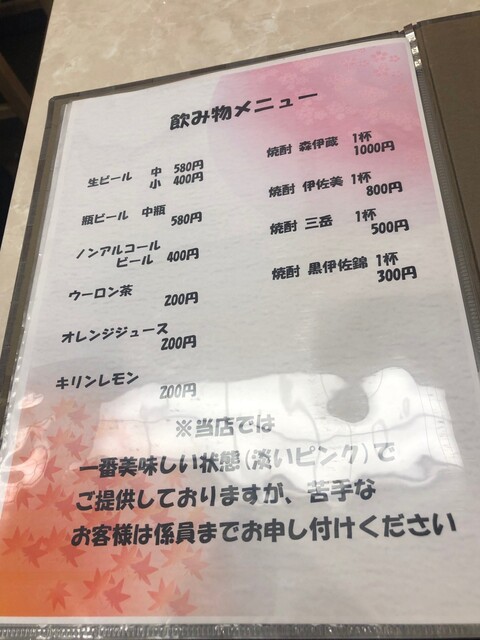 飲み物メニュー
生ビール 中 580円
小 400円
瓶ビール 中瓶 580円
ノンアルコール
ビール 400円
ウーロン茶 200円
オレンジジュース
200円
キリンレモン 200円
焼酎 森伊蔵 1杯
1000円
焼酎 伊佐美 1杯
800円
焼酎 三岳 1杯
500円
焼酎 黒伊佐錦 1杯
300円
※当店では
一番美味しい状態(淡いピンク)で
ご提供しておりますが、苦手な
お客様は係員までお申し付けください